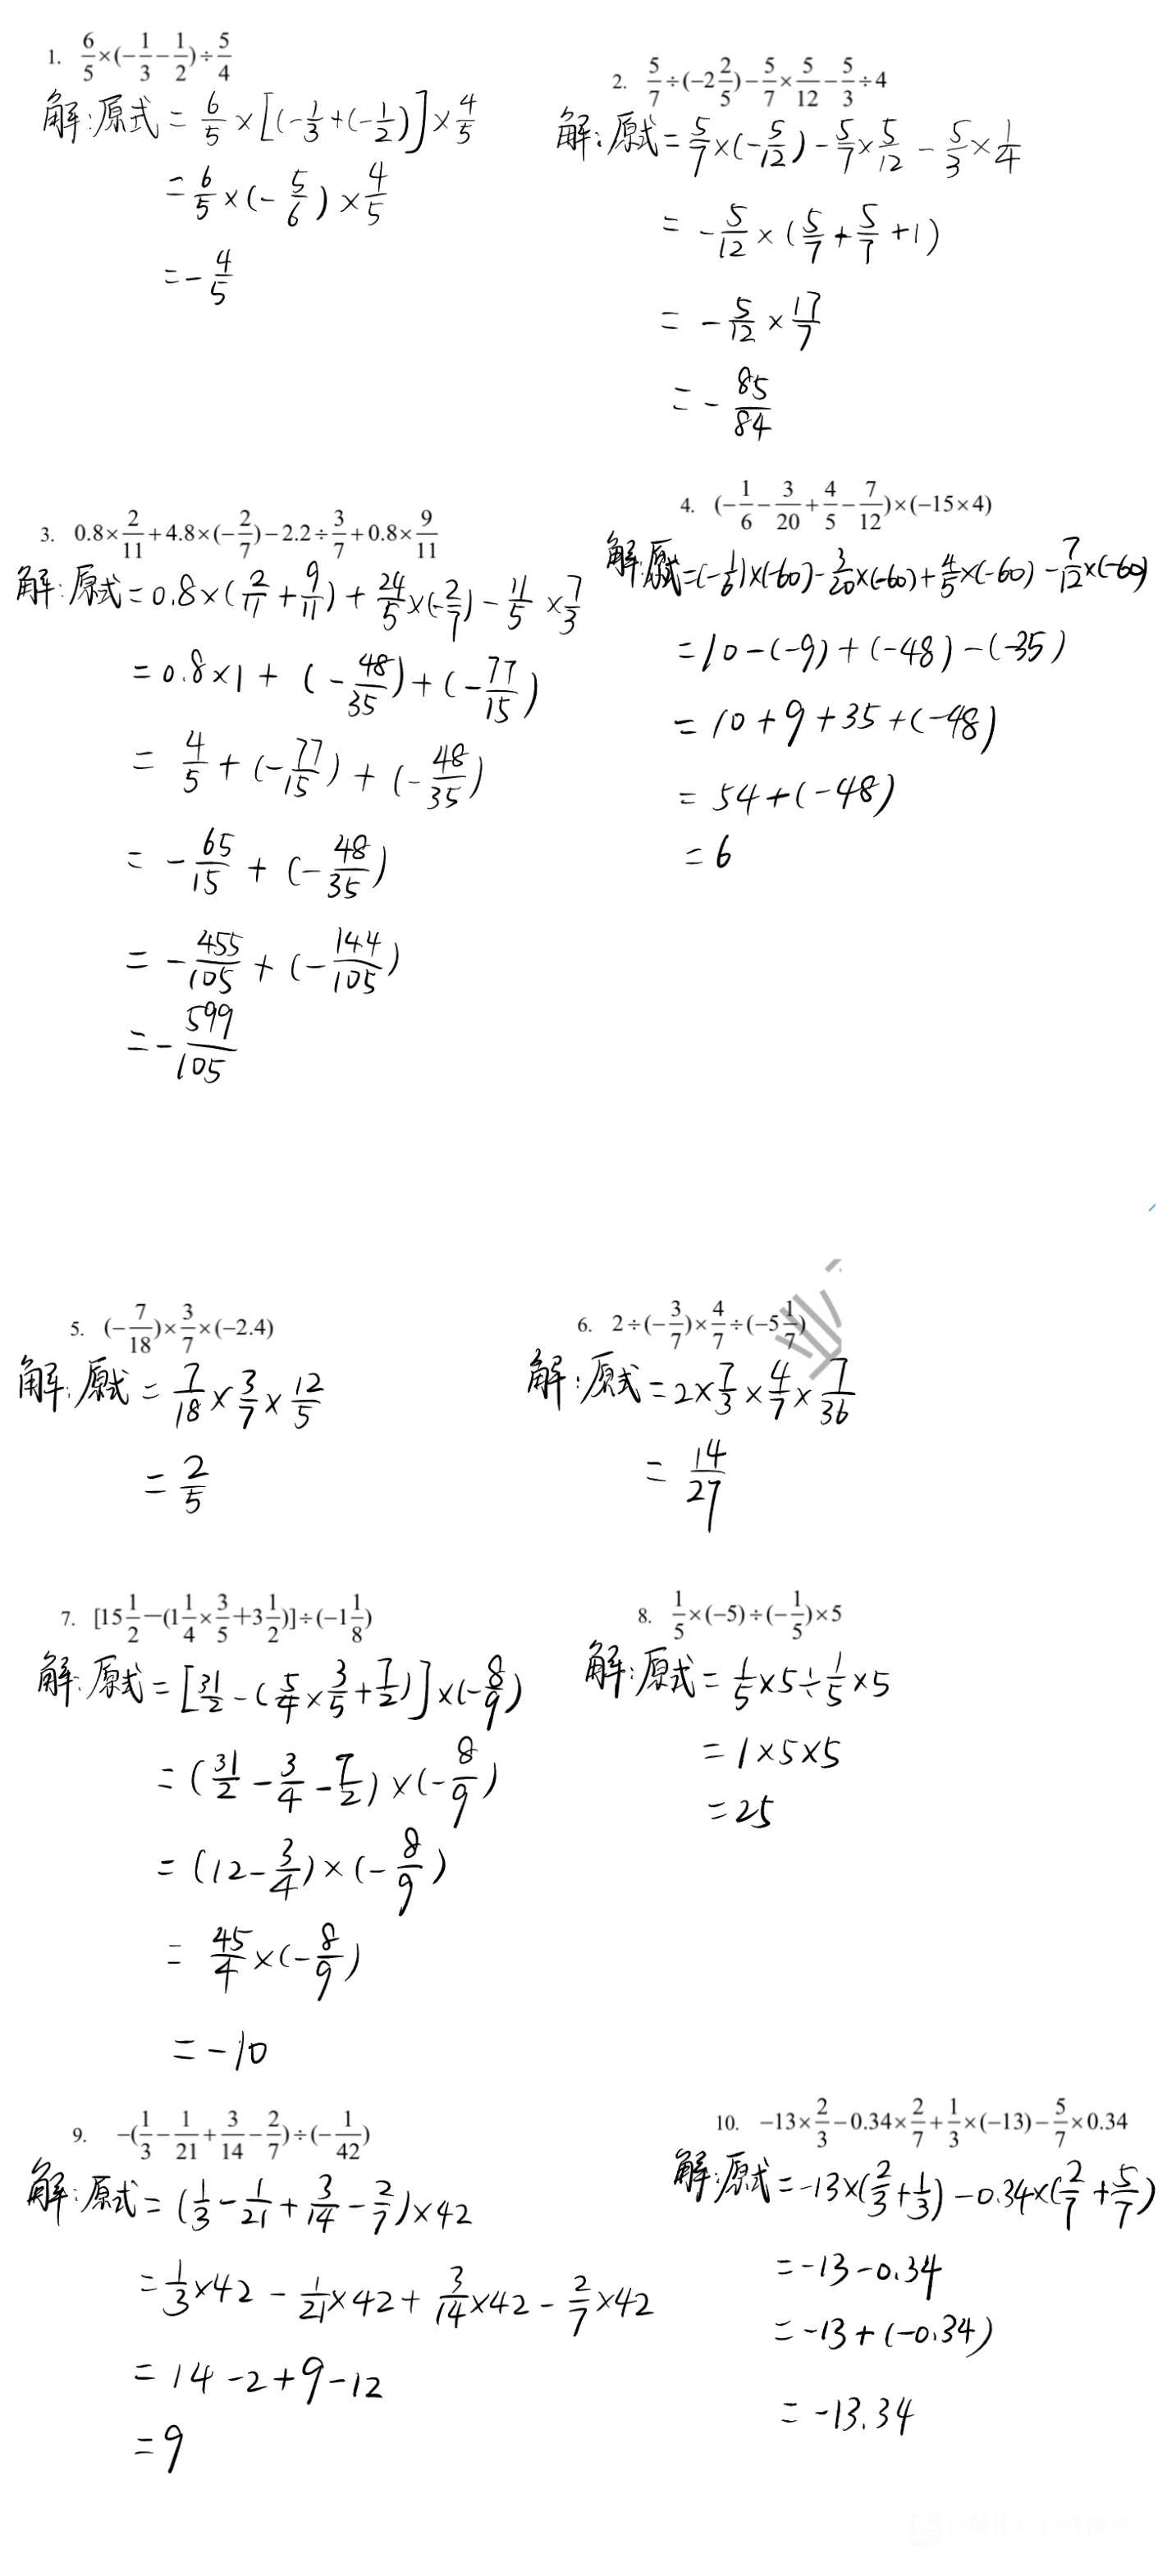 1. 6/5×(-1/3-1/2)÷5/4
解:原式=6/5×[(-1/3+(-1/2)]×4/5
=6/5×(-5/6)×4/5
=-4/5
2. 5/7÷(-2 2/5)-5/7×5/12-5/3÷4
解:原式=5/7×(-5/12)-5/7×5/12-5/3×1/4
=-5/12×(5/7+5/7+1)
=-5/12×17/7
=-85/84
3. 0.8×2/11+4.8×(-2/7)-2.2÷3/7+0.8×9/11
解:原式=0.8×(2/11+9/11)+24/5×(-2/7)-11/5×7/3
=0.8×1+(-48/35)+(-77/15)
=4/5+(-77/15)+(-48/35)
=-65/15+(-48/35)
=-455/105+(-144/105)
=-599/105
4. (-1/6-3/20+4/5-7/12)×(-15×4)
解:原式=(-1/6)×(-60)-3/20×(-60)+4/5×(-60)-7/12×(-60)
=10-(-9)+(-48)-(-35)
=10+9+35+(-48)
=54+(-48)
=6
5. (-7/18)×3/7×(-2.4)
解:原式=7/18×3/7×12/5
=2/5
6. 2÷(-3/7)×4/7÷(-5 1/7)
解:原式=2×7/3×4/7×7/36
=14/27
7. [15 1/2-(1 1/4×3/5+3 1/2)]÷(-1 1/8)
解:原式=[31/2-(5/4×3/5+7/2)]×(-8/9)
=(31/2-3/4-7/2)×(-8/9)
=(12-3/4)×(-8/9)
=45/4×(-8/9)
=-10
8. 1/5×(-5)÷(-1/5)×5
解:原式=1/5×5÷1/5×5
=1×5×5
=25
9. -(1/3-1/21+3/14-2/7)÷(-1/42)
解:原式=(1/3-1/21+3/14-2/7)×42
=1/3×42-1/21×42+3/14×42-2/7×42
=14-2+9-12
=9
10. -13×2/3-0.34×2/7+1/3×(-13)-5/7×0.34
解:原式=-13×(2/3+1/3)-0.34×(2/7+5/7)
=-13-0.34
=-13+(-0.34)
=-13.34